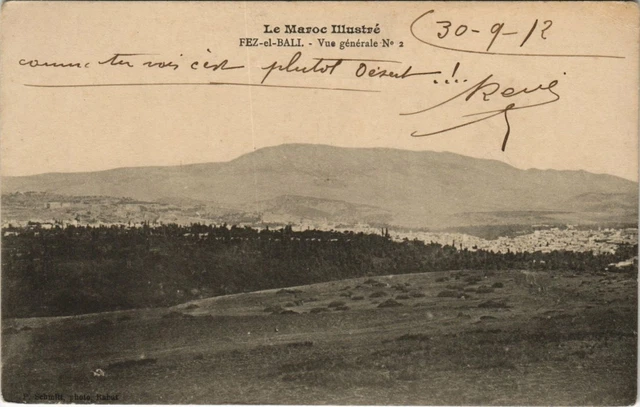 Le Maroc Illustré
FEZ-el-BALI. - Vue générale No 2
30-9-12
comme tu vois c'est plutôt Désert ...!!!
René
F. Schmitt, photo, Rabat